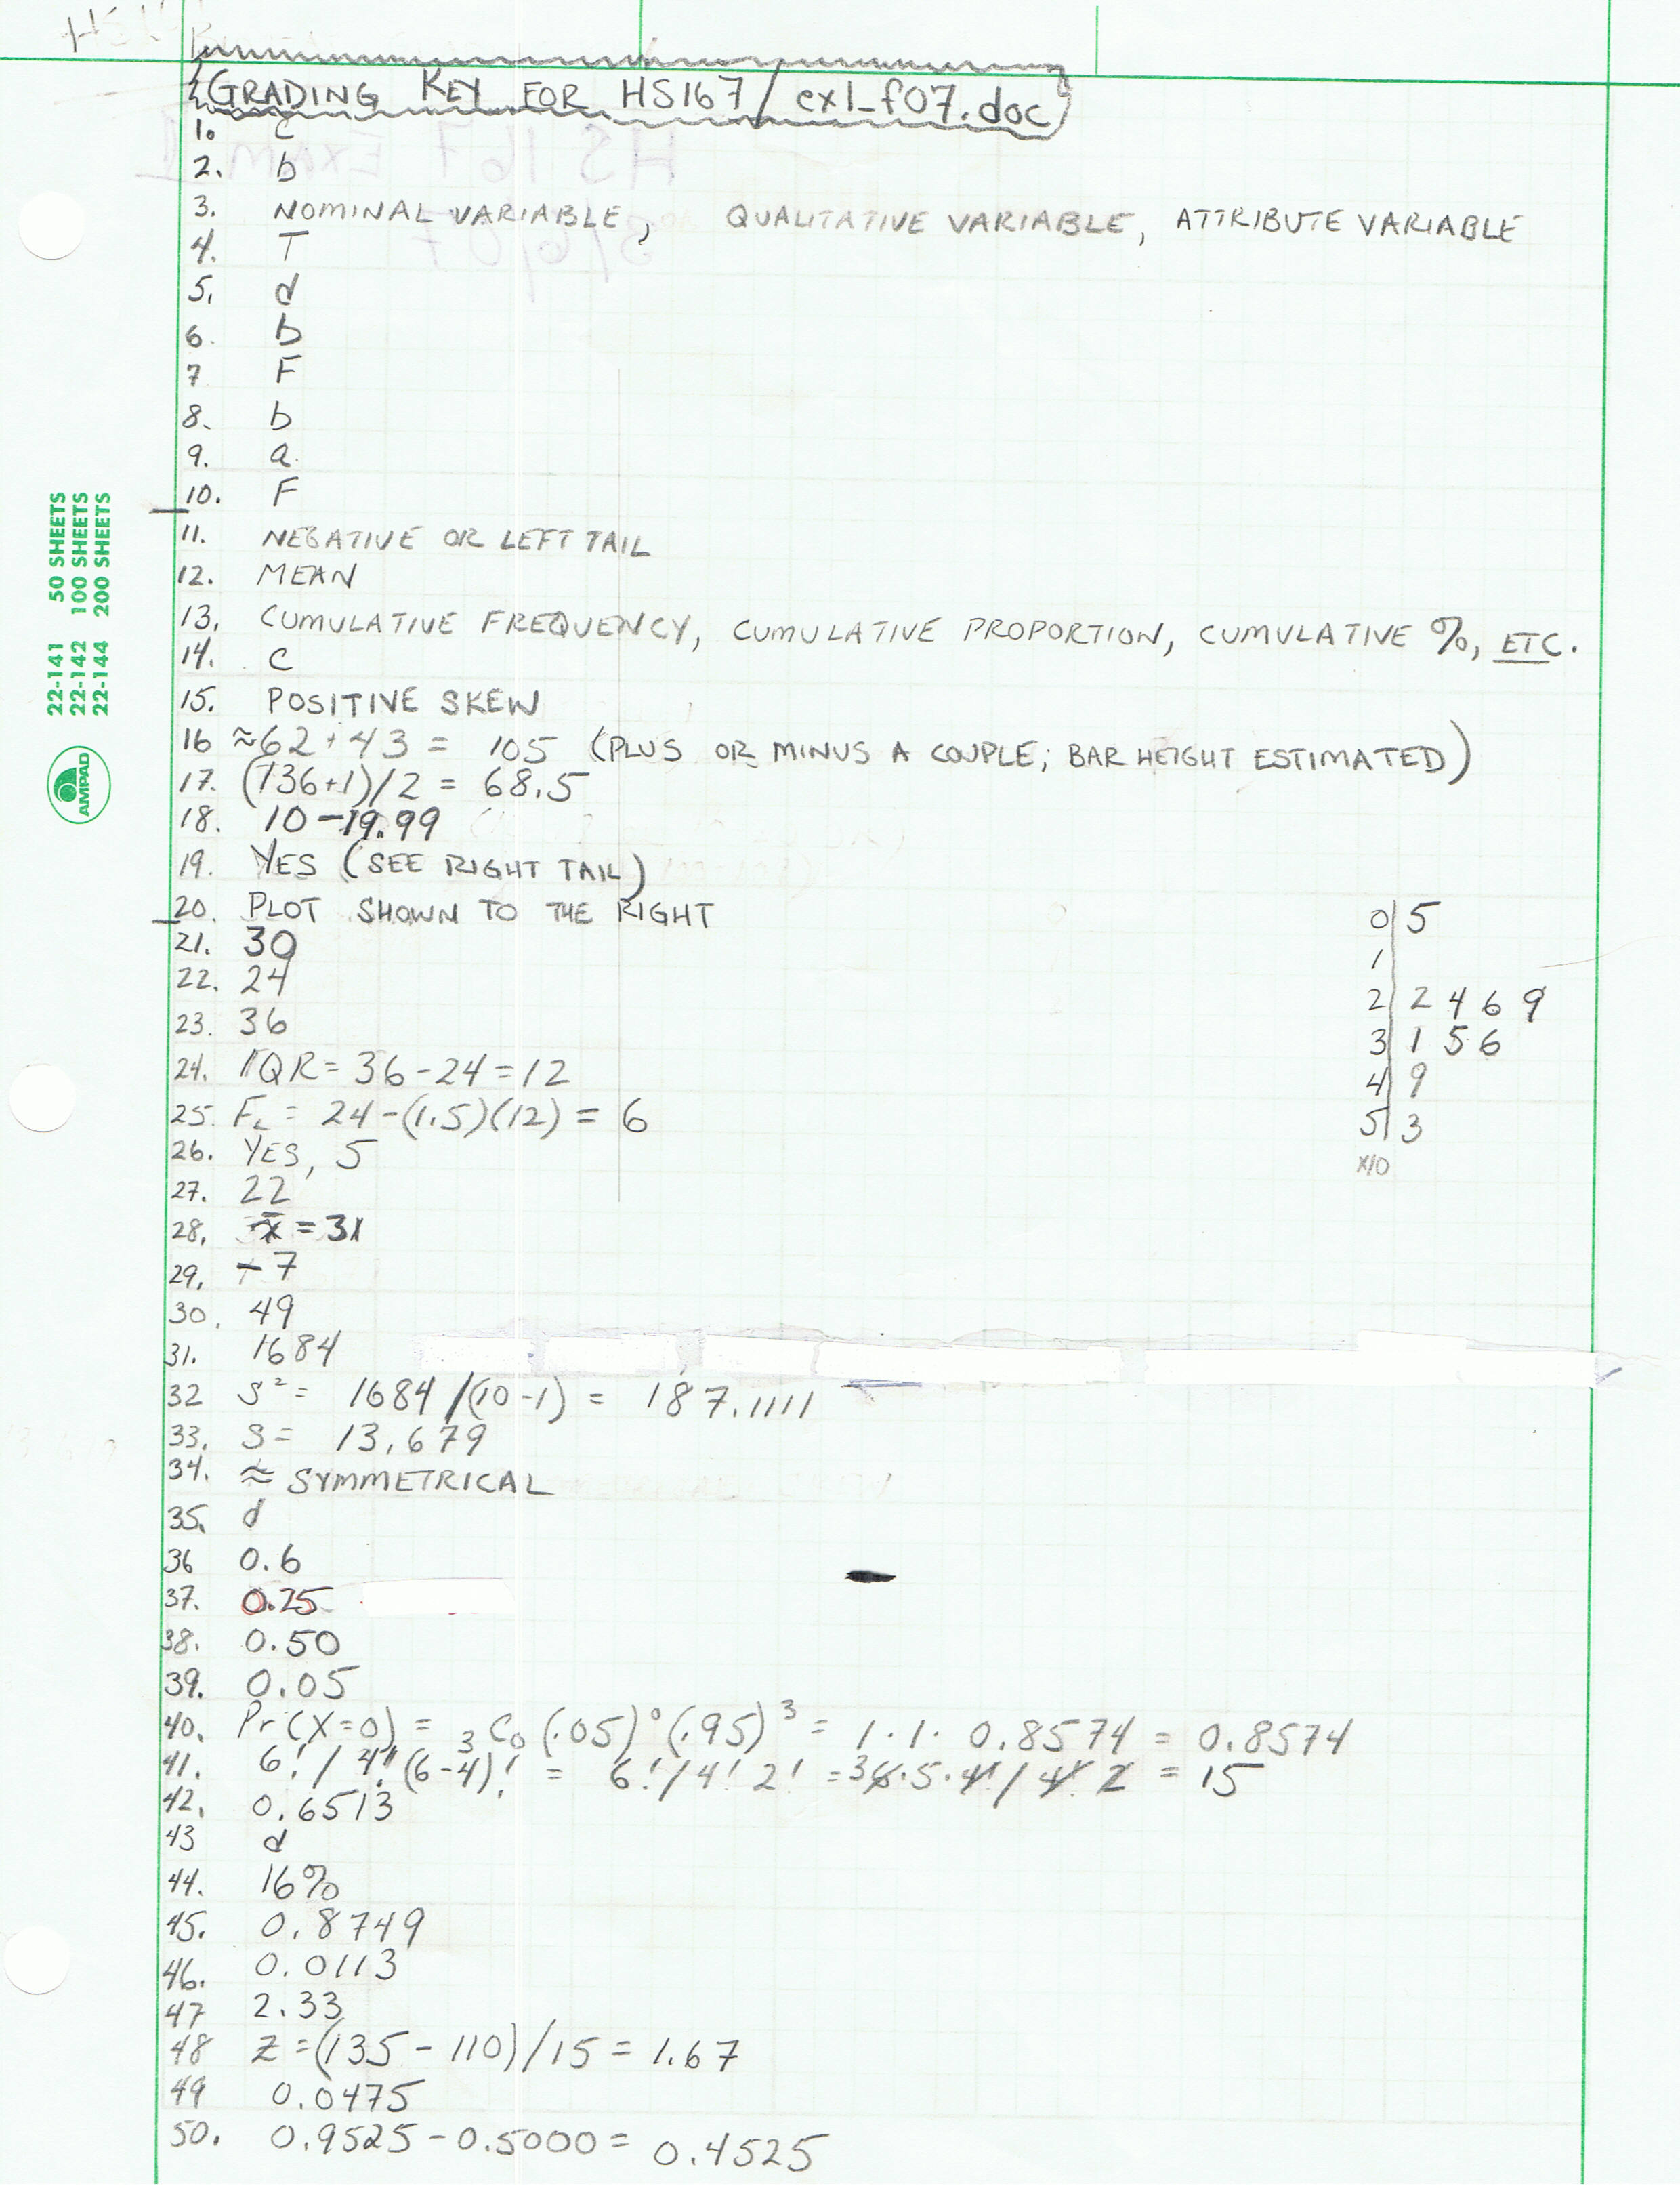 GRADING KEY FOR HS167/ex1_f07.doc
1. c
2. b
3. NOMINAL VARIABLE, QUALITATIVE VARIABLE, ATTRIBUTE VARIABLE
4. T
5. d
6. b
7 F
8. b
9. a.
10. F
11. NEGATIVE OR LEFT TAIL
12. MEAN
13. CUMULATIVE FREQUENCY, CUMULATIVE PROPORTION, CUMULATIVE %, ETC.
14. C
15. POSITIVE SKEW
16 ≈62 + 43 = 105 (PLUS OR MINUS A COUPLE; BAR HEIGHT ESTIMATED)
17. (136+1)/2 = 68.5
18. 10-19.99
19. YES (SEE RIGHT TAIL)
20. PLOT SHOWN TO THE RIGHT
21. 30
22. 24
23. 36
24. IQR = 36-24 = 12
25. FL = 24-(1.5)(12) = 6
26. YES, 5
27. 22
28. x̄ = 31
29. -7
30. 49
31. 1684
32 s² = 1684/(10-1) = 187.1111
33. S = 13.679
34. ≈ SYMMETRICAL
35. d
36 0.6
37. 0.25
38. 0.50
39. 0.05
40. Pr(X=0) = ₃C₀ (.05)⁰ (.95)³ = 1·1· 0.8574 = 0.8574
41. 6! / 4! (6-4)! = 6! / 4! 2! = 3 6·5·4! / 4! 2 = 15
42. 0.6513
43 d
44. 16%
45. 0.8749
46. 0.0113
47 2.33
48 Z = (135 - 110)/15 = 1.67
49 0.0475
50. 0.9525 - 0.5000 = 0.4525
0|5
1|
2|2 4 6 9
3|1 5 6
4|9
5|3
x10
22-141 50 SHEETS
22-142 100 SHEETS
22-144 200 SHEETS
AMPAD
HS 167 EXAM 1